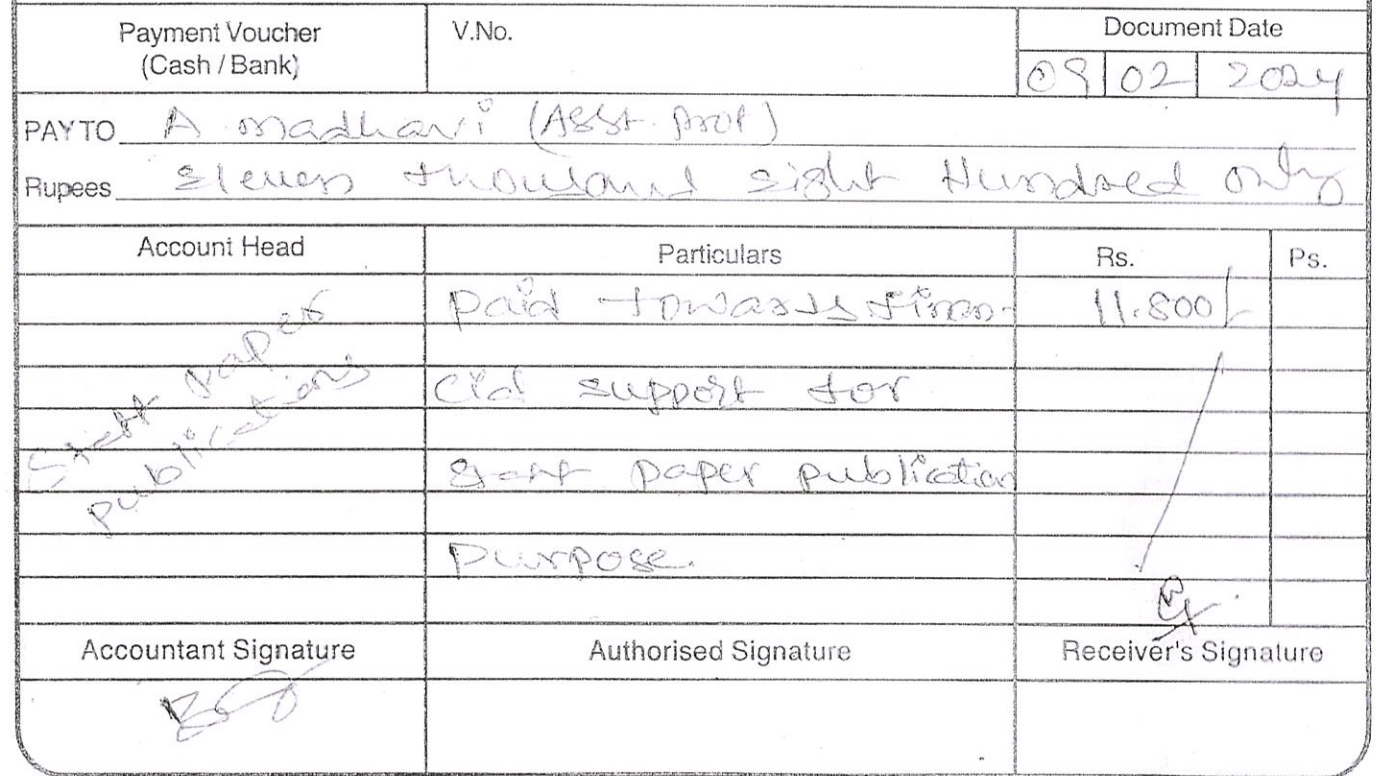 Payment Voucher
(Cash / Bank)
V.No.
Document Date
09 02 2024
PAY TO A madhavi (Asst. prof)
Rupees Eleven thousand eight Hundred only
Account Head
Particulars
Rs.
Ps.
Staff paper
publications
paid towards finan-
cial support for
staff paper publication
purpose.
11.800/-
Accountant Signature
Authorised Signature
Receiver's Signature